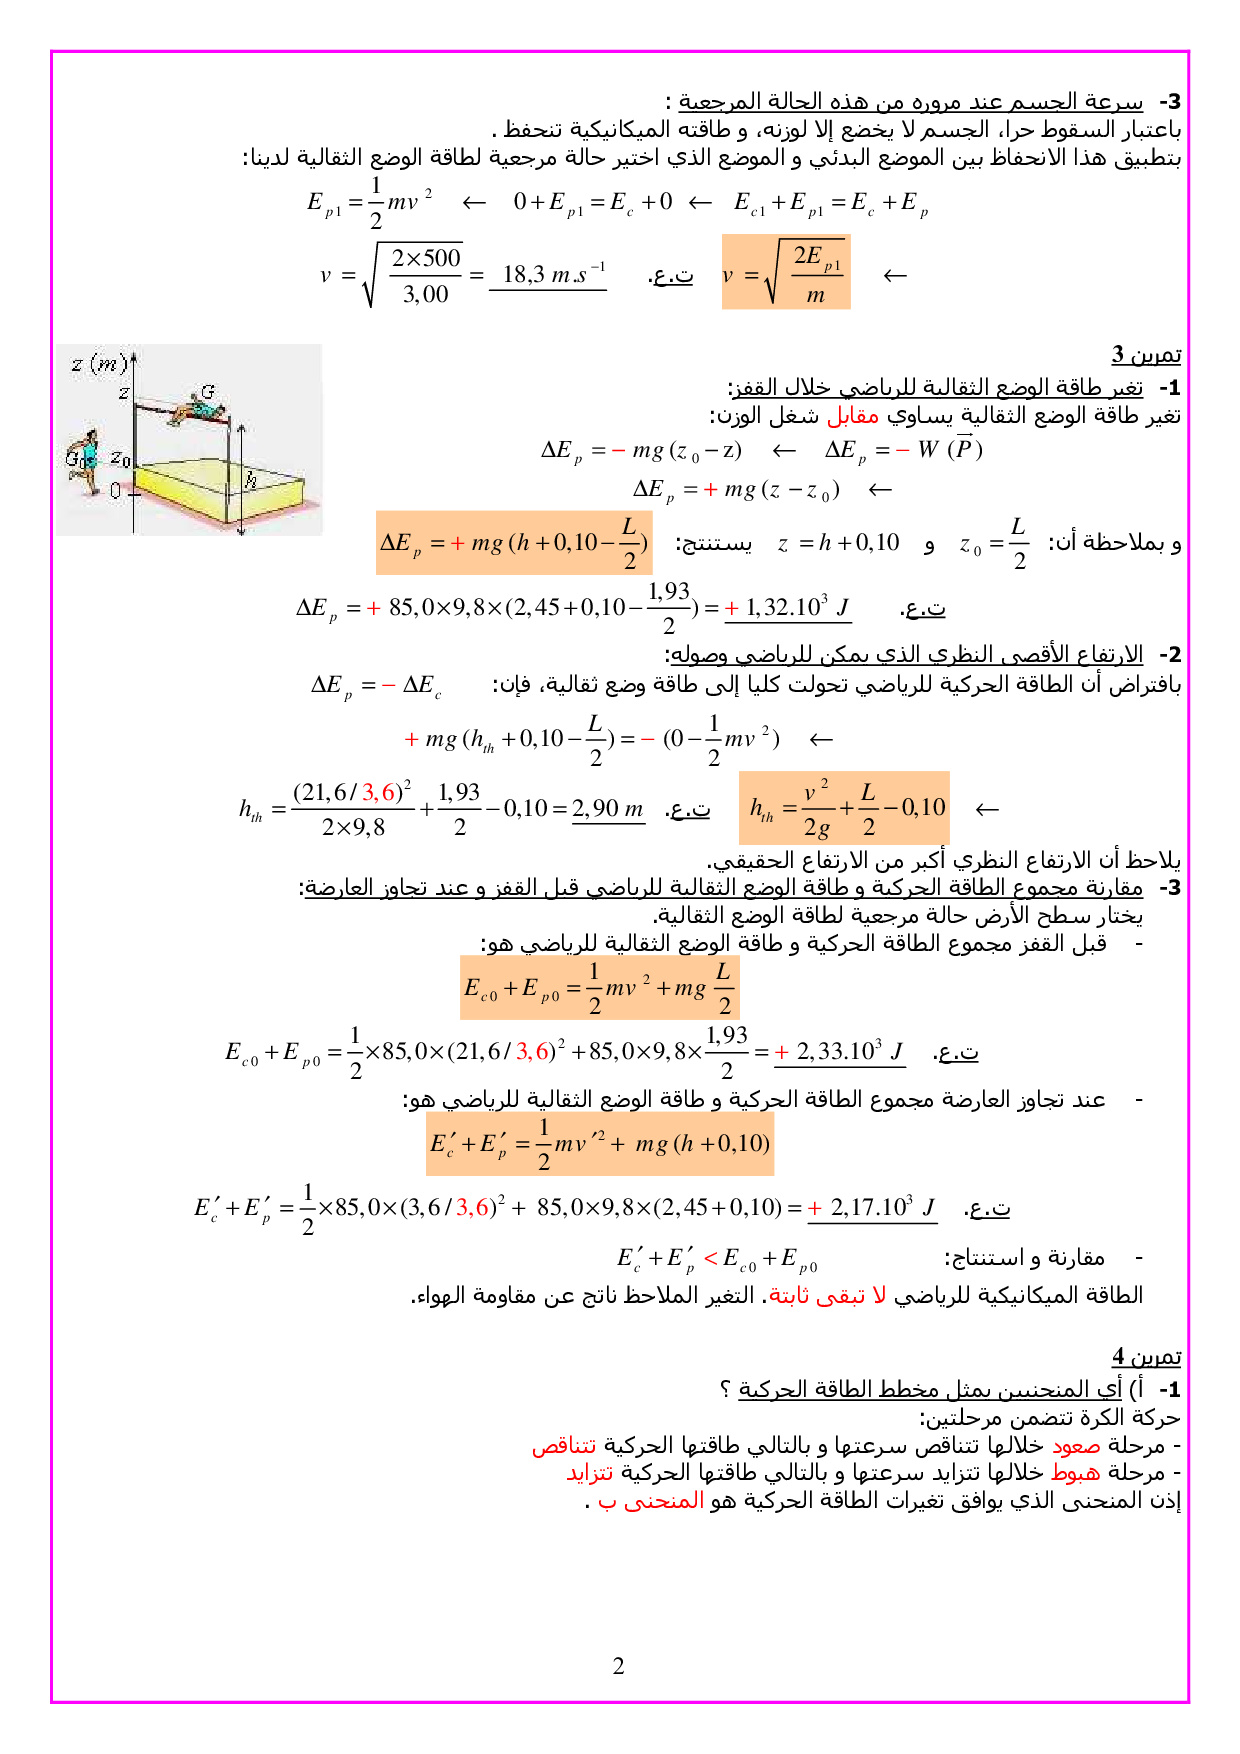 3- سرعة الجسم عند مروره من هذه الحالة المرجعية :
باعتبار السقوط حرا، الجسم لا يخضع إلا لوزنه، و طاقته الميكانيكية تنحفظ .
بتطبيق هذا الانحفاظ بين الموضع البدئي و الموضع الذي اختير حالة مرجعية لطاقة الوضع الثقالية لدينا:
E_{c1} + E_{p1} = E_c + E_p ← 0 + E_{p1} = E_c + 0 ← E_{p1} = \frac{1}{2} mv^2
← v = \sqrt{\frac{2E_{p1}}{m}} ت.ع. v = \sqrt{\frac{2×500}{3,00}} = 18,3 m.s^{-1}
تمرين 3
1- تغير طاقة الوضع الثقالية للرياضي خلال القفز:
تغير طاقة الوضع الثقالية يساوي مقابل شغل الوزن:
ΔE_p = - W (\vec{P}) ← ΔE_p = - mg (z_0 - z)
← ΔE_p = + mg (z - z_0)
و بملاحظة أن: z_0 = \frac{L}{2} و z = h + 0,10 يستنتج: ΔE_p = + mg (h + 0,10 - \frac{L}{2})
ت.ع. ΔE_p = + 85,0×9,8×(2,45 + 0,10 - \frac{1,93}{2}) = + 1,32.10^3 J
z (m)
z
G
G_0
z_0
0
h
2- الارتفاع الأقصى النظري الذي يمكن للرياضي وصوله:
بافتراض أن الطاقة الحركية للرياضي تحولت كليا إلى طاقة وضع ثقالية، فإن: ΔE_p = - ΔE_c
← + mg (h_{th} + 0,10 - \frac{L}{2}) = - (0 - \frac{1}{2} mv^2)
← h_{th} = \frac{v^2}{2g} + \frac{L}{2} - 0,10 ت.ع. h_{th} = \frac{(21,6 / 3,6)^2}{2×9,8} + \frac{1,93}{2} - 0,10 = 2,90 m
يلاحظ أن الارتفاع النظري أكبر من الارتفاع الحقيقي.
3- مقارنة مجموع الطاقة الحركية و طاقة الوضع الثقالية للرياضي قبل القفز و عند تجاوز العارضة:
يختار سطح الأرض حالة مرجعية لطاقة الوضع الثقالية.
- قبل القفز مجموع الطاقة الحركية و طاقة الوضع الثقالية للرياضي هو:
E_{c0} + E_{p0} = \frac{1}{2} mv^2 + mg \frac{L}{2}
ت.ع. E_{c0} + E_{p0} = \frac{1}{2} ×85,0×(21,6 / 3,6)^2 + 85,0×9,8× \frac{1,93}{2} = + 2,33.10^3 J
- عند تجاوز العارضة مجموع الطاقة الحركية و طاقة الوضع الثقالية للرياضي هو:
E'_c + E'_p = \frac{1}{2} mv'^2 + mg (h + 0,10)
ت.ع. E'_c + E'_p = \frac{1}{2} ×85,0×(3,6 / 3,6)^2 + 85,0×9,8×(2,45 + 0,10) = + 2,17.10^3 J
- مقارنة و استنتاج: E'_c + E'_p < E_{c0} + E_{p0}
الطاقة الميكانيكية للرياضي لا تبقى ثابتة. التغير الملاحظ ناتج عن مقاومة الهواء.
تمرين 4
1- أ) أي المنحنيين يمثل مخطط الطاقة الحركية ؟
حركة الكرة تتضمن مرحلتين:
- مرحلة صعود خلالها تتناقص سرعتها و بالتالي طاقتها الحركية تتناقص
- مرحلة هبوط خلالها تتزايد سرعتها و بالتالي طاقتها الحركية تتزايد
إذن المنحنى الذي يوافق تغيرات الطاقة الحركية هو المنحنى ب .
2